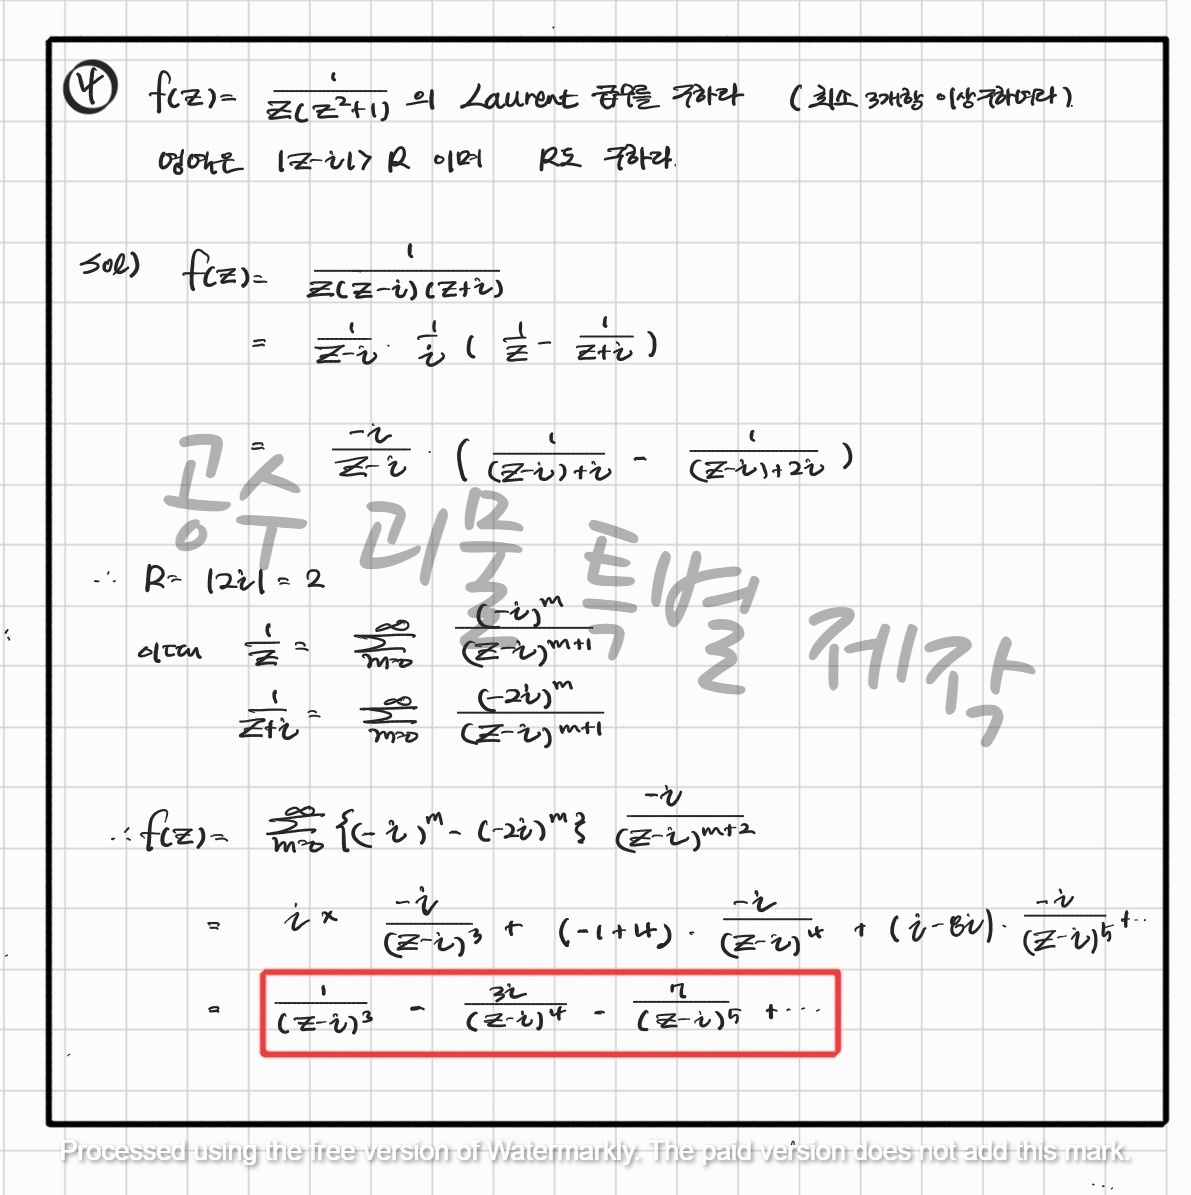 ④ f(z)= 1/(z(z²+1)) 의 Laurent 급수를 구하라 (최소 3개항 이상 구하여라).
영역은 |z-i|> R 이며 R도 구하라.
sol) f(z)= 1/(z(z-i)(z+i))
= 1/(z-i) · 1/i ( 1/z - 1/(z+i) )
= -i/(z-i) · ( 1/((z-i)+i) - 1/((z-i)+2i) )
공수 괴물 특별 제작
∴ R= |2i| = 2
이때 1/z = ∑_{m=0}^{∞} (-i)^m/(z-i)^{m+1}
1/(z+i) = ∑_{m=0}^{∞} (-2i)^m/(z-i)^{m+1}
∴ f(z)= ∑_{m=0}^{∞} {(-i)^m - (-2i)^m} -i/(z-i)^{m+2}
= i × -i/(z-i)³ + (-1+4) · -i/(z-i)⁴ + (i-8i) · -i/(z-i)⁵ + ...
= 1/(z-i)³ - 3i/(z-i)⁴ - 7/(z-i)⁵ + ...
Processed using the free version of Watermarkly. The paid version does not add this mark.